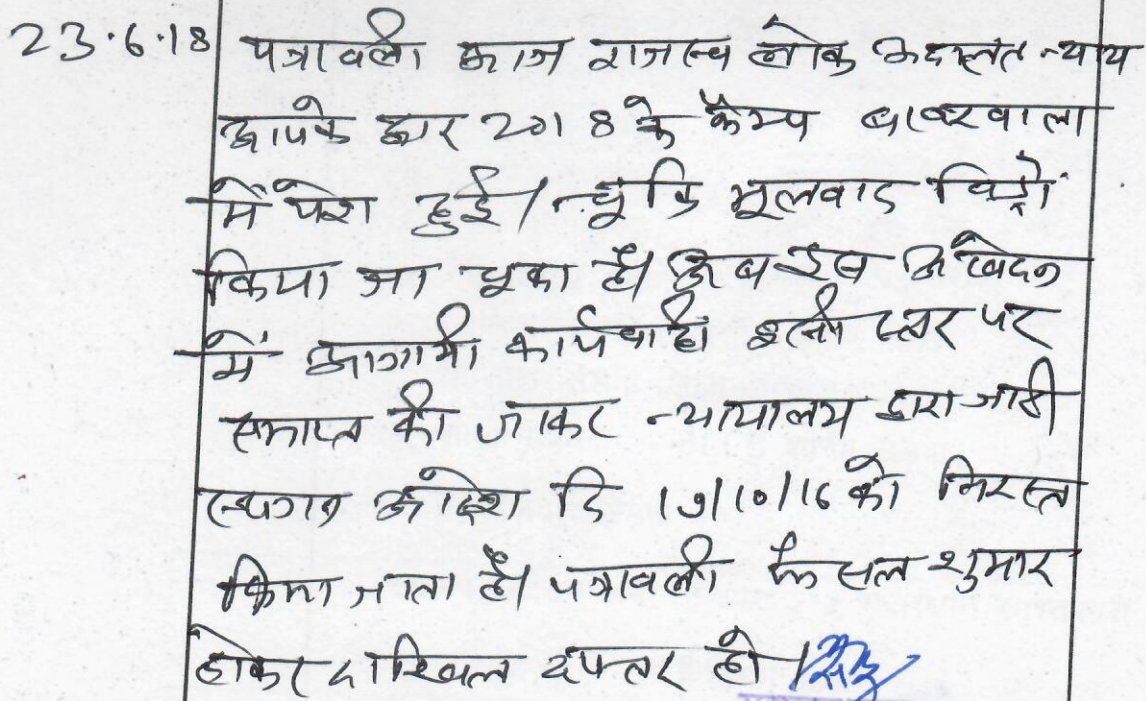 23.6.18 पत्रावली आज राजस्व लोक अदालत न्याय
आपके द्वार 2018 के कैम्प वाला
में पेश हुई। चूंकि मूलवाद विड्रो
किया जा चूका है। अब इस आवेदन
में आगामी कार्यवाही इसी स्तर पर
समाप्त की जाकर न्यायालय द्वारा जारी
स्थगन आदेश दि 19/10/16 को निरस्त
किया जाता है। पत्रावली फैसल शुमार
होकर दाखिल दफ्तर हो।